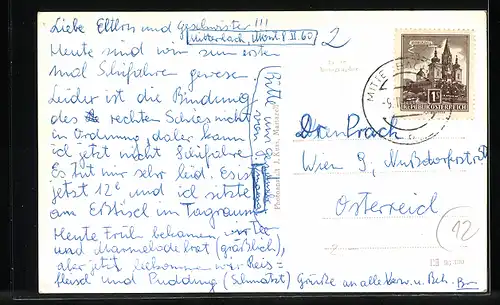 Liebe Eltern und Geschwister!!!
Mitterbach, Mont. 8.II.60
2
Heute sind wir zum ersten
mal Schifahren gewesen.
Leider ist die Bindung
des rechten Schies nicht
in Ordnung, daher kann
ich jetzt nicht Schifahren.
Es tut mir sehr leid. Es ist
jetzt 12h und ich sitze
am Eßtisch im Tagraum.
Heute Früh bekamen wir Tee
und Marmeladebrot (gräßlich),
aber jetzt bekommen wir Reis-
fleisch und Pudding (Schmatz!) Grüße an alle Verw. u. Bek.
Bitte
REPUBLIK ÖSTERREICH
1S
Prach
Wien 9., Nußdorferstraße
Österreich
12